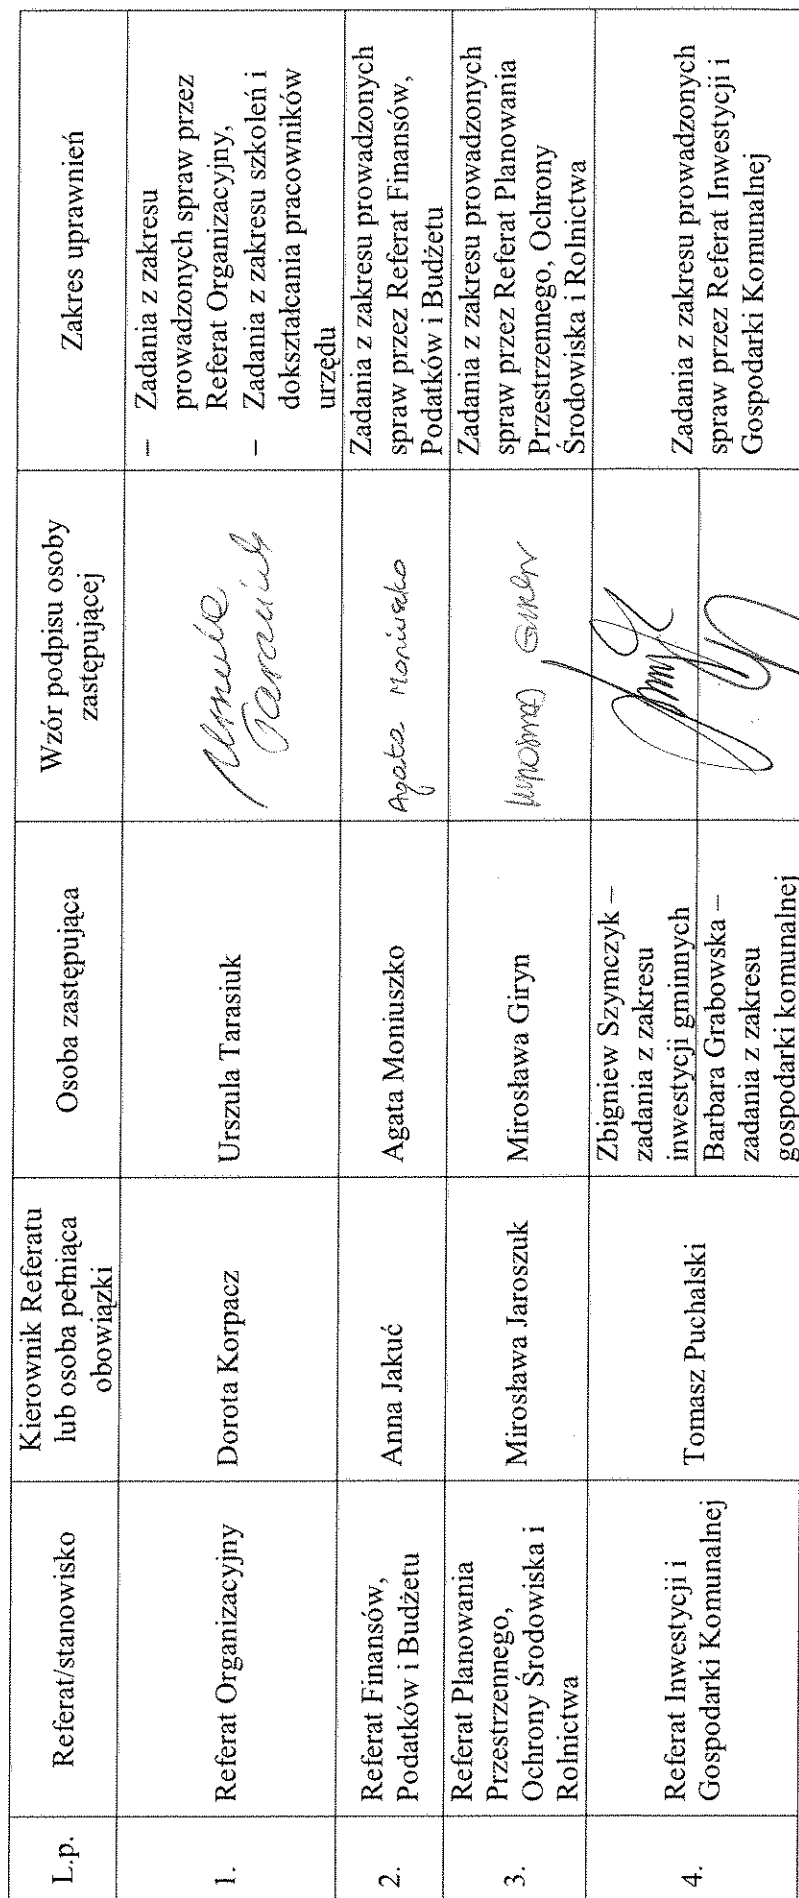 L.p.
Referat/stanowisko
Kierownik Referatu
lub osoba pełniąca
obowiązki
Osoba zastępująca
Wzór podpisu osoby
zastępującej
Zakres uprawnień
1.
Referat Organizacyjny
Dorota Korpacz
Urszula Tarasiuk
Urszula
Tarasiuk
– Zadania z zakresu
prowadzonych spraw przez
Referat Organizacyjny,
– Zadania z zakresu szkoleń i
dokształcania pracowników
urzędu
2.
Referat Finansów,
Podatków i Budżetu
Anna Jakuć
Agata Moniuszko
Agata Moniuszko
Zadania z zakresu prowadzonych
spraw przez Referat Finansów,
Podatków i Budżetu
3.
Referat Planowania
Przestrzennego,
Ochrony Środowiska i
Rolnictwa
Mirosława Jaroszuk
Mirosława Giryn
Mirosława Giryn
Zadania z zakresu prowadzonych
spraw przez Referat Planowania
Przestrzennego, Ochrony
Środowiska i Rolnictwa
4.
Referat Inwestycji i
Gospodarki Komunalnej
Tomasz Puchalski
Zbigniew Szymczyk –
zadania z zakresu
inwestycji gminnych
Barbara Grabowska –
zadania z zakresu
gospodarki komunalnej
Zadania z zakresu prowadzonych
spraw przez Referat Inwestycji i
Gospodarki Komunalnej